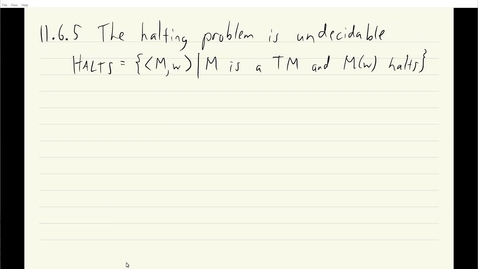 11.6.5 The halting problem is undecidable
HALTS = {(M,w) | M is a TM and M(w) halts}